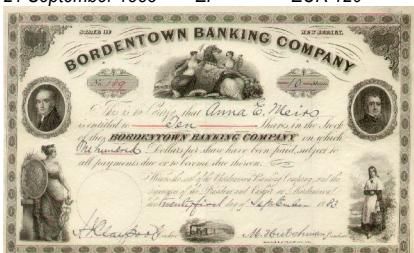 STATE OF NEW JERSEY.
BORDENTOWN BANKING COMPANY
No. 189 10
This is to Certify, that Anna E. Meirs
is entitled to Ten Shares in the Stock
of the BORDENTOWN BANKING COMPANY on which
One hundred Dollars per share have been paid, subject to
all payments due or to become due thereon.
Witness the seal of the Bordentown Banking Company, and the
signatures of the President and Cashier, at Bordentown
this twenty first day of September 1883